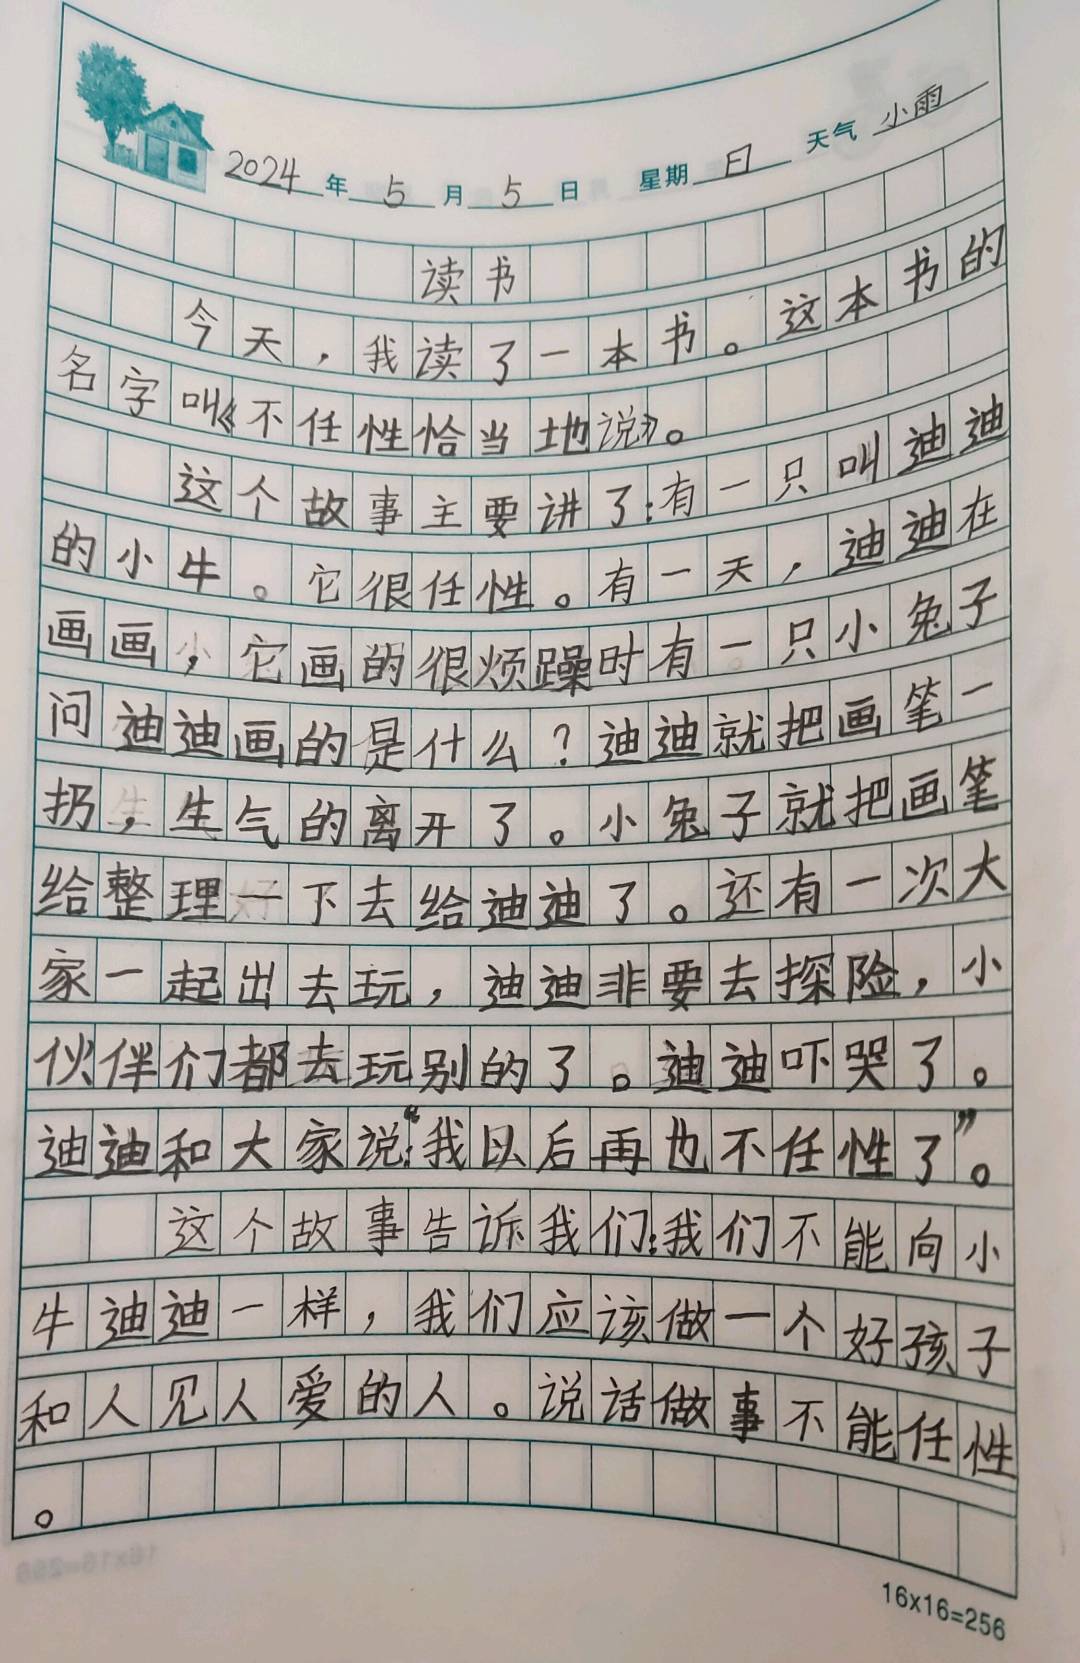 2024年5月5日 星期日 天气小雨
读书
今天，我读了一本书。这本书的
名字叫《不任性恰当地说》。
这个故事主要讲了：有一只叫迪迪
的小牛。它很任性。有一天，迪迪在
画画，它画的很烦躁时有一只小兔子
问迪迪画的是什么？迪迪就把画笔一
扔，生气的离开了。小兔子就把画笔
给整理一下去给迪迪了。还有一次大
家一起出去玩，迪迪非要去探险，小
伙伴们都去玩别的了。迪迪吓哭了。
迪迪和大家说：“我以后再也不任性了”。
这个故事告诉我们：我们不能向小
牛迪迪一样，我们应该做一个好孩子
和人见人爱的人。说话做事不能任性
。
16x16=256